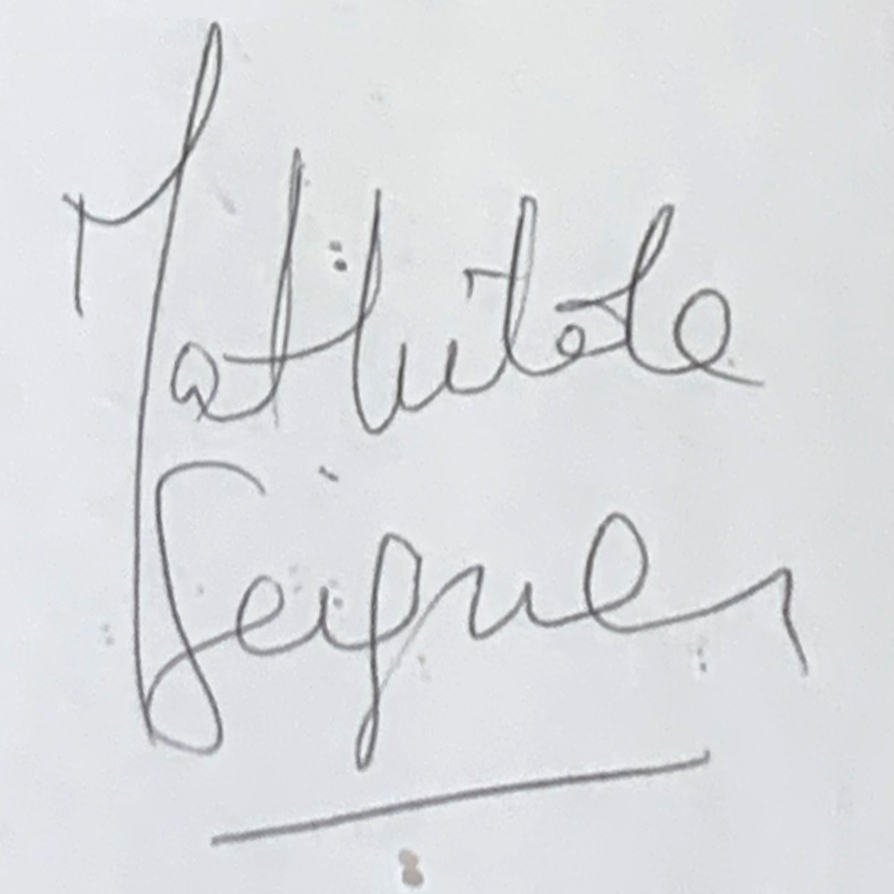 Mathilde
Seigner